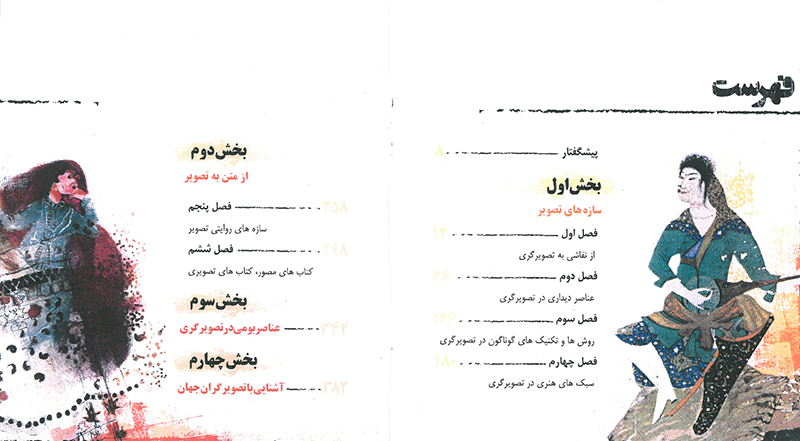 فهرست
پیشگفتار ۸
بخش اول
سازه های تصویر
فصل اول
از نقاشی به تصویرگری
فصل دوم
عناصر دیداری در تصویرگری
فصل سوم
روش ها و تکنیک های گوناگون در تصویرگری
فصل چهارم ۱۸۰
سبک های هنری در تصویرگری
بخش دوم
از متن به تصویر
فصل پنجم ۲۵۸
سازه های روایتی تصویر
فصل ششم ۲۹۸
کتاب های مصور، کتاب های تصویری
بخش سوم
عناصر بومی در تصویرگری ۳۴۲
بخش چهارم
آشنایی با تصویرگران جهان ۳۸۲